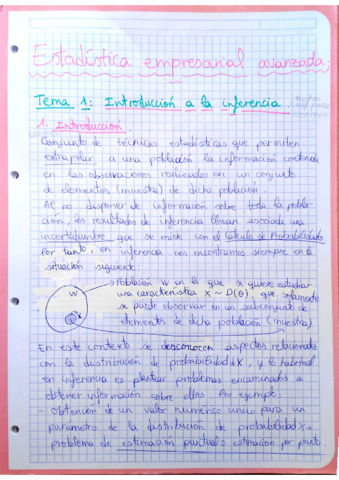 Estadística empresarial avanzada:
Tema 1: Introducción a la inferencia
1. Introducción:
Conjunto de técnicas estadísticas que permiten
extrapolar a una población la información contenida
en las observaciones realizadas en un conjunto
de elementos (muestra) de dicha población.
Al no disponer de información sobre toda la pobla-
ción, los resultados de inferencia llevan asociada una
incertidumbre que se mide con el Cálculo de Probabilidades
Por tanto, en inferencia nos encontramos siempre en la
situación siguiente:
Población W en la que se quiere estudiar
una característica X ~ D(θ), que solamente
W
se puede observar en un subconjunto de
elementos de dicha población (muestra)
En este contexto se desconocen aspectos relacionados
con la distribución de probabilidad de X, y lo habitual
en inferencia es plantear problemas encaminados a
obtener información sobre ellos. Por ejemplo:
- obtención de un valor numérico único para un
parámetro de la distribución de probabilidad X →
problema de estimación puntual o estimación por punto.